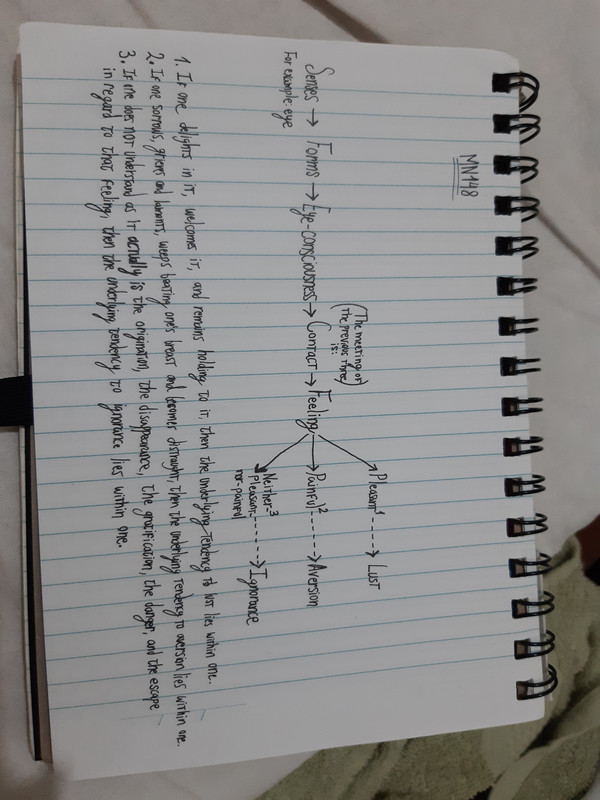 MN148
(The meeting of
the previous three
is:)
Senses → Forms → Eye-consciousness → Contact → Feeling
For example: eye
Pleasant¹ ----→ Lust
Painful² ----→ Aversion
Neither-³
pleasant- ----→ Ignorance
nor-painful
1. If one delights in it, welcomes it, and remains holding to it, then the underlying tendency to lust lies within one.
2. If one sorrows, grieves and laments, weeps beating one's breast and becomes distraught, then the underlying tendency to aversion lies within one.
3. If one does not understand as it actually is the origination, the disappearance, the gratification, the danger, and the escape
in regard to that feeling, then the underlying tendency to ignorance lies within one.